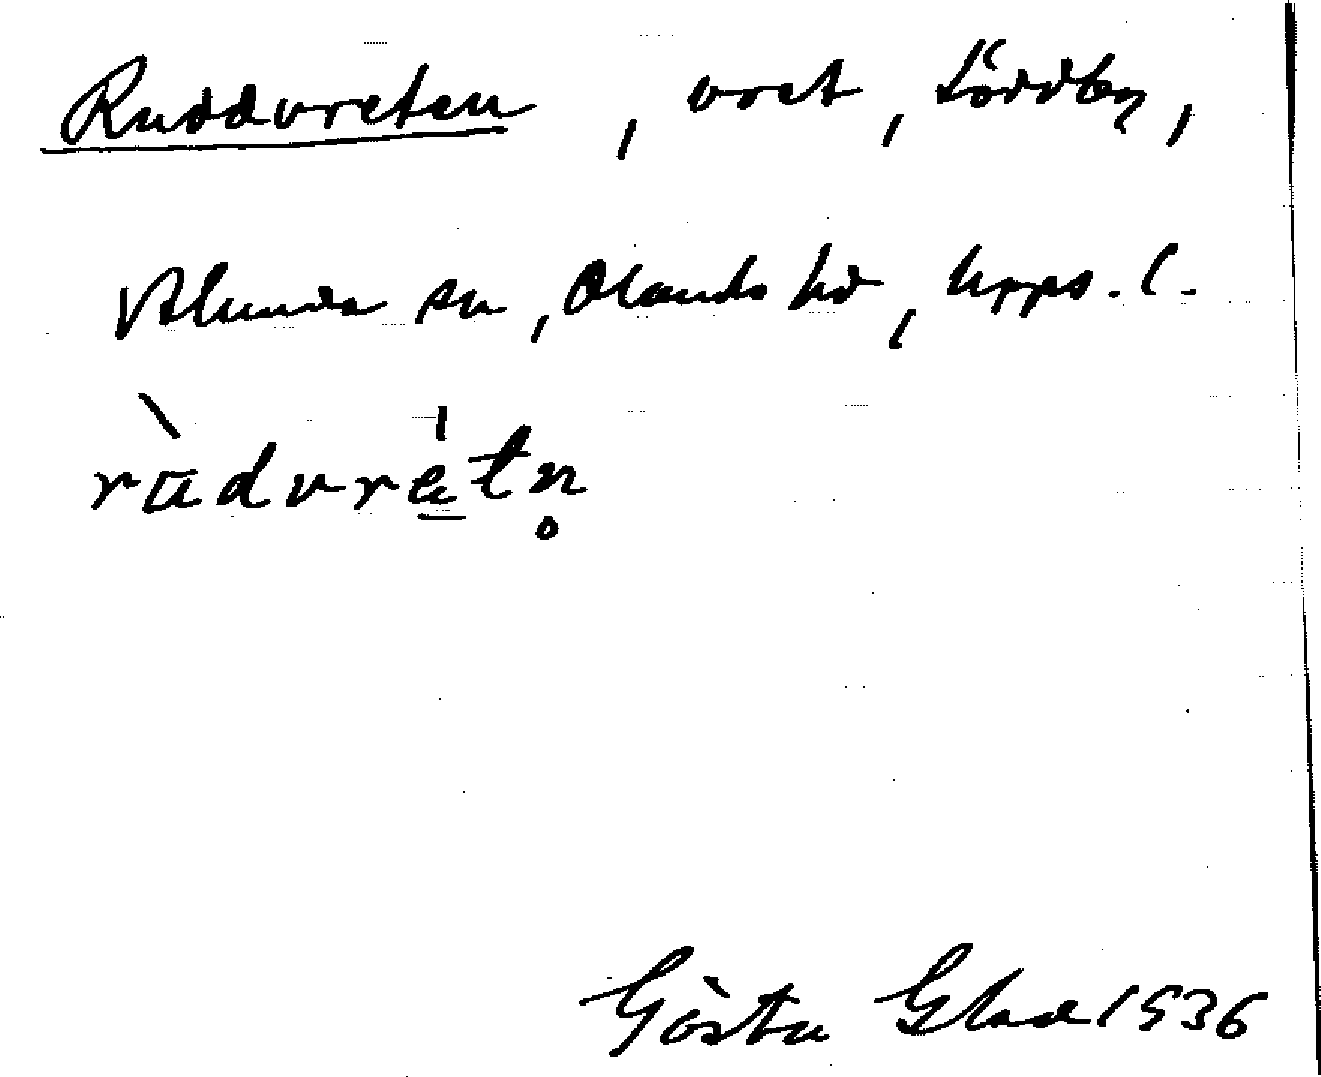 Ruddvreten, vret, Söddby,
Alunda sn, Olands hd, Upps. l.
rùdvrètn̥
Gösta Glad 1936